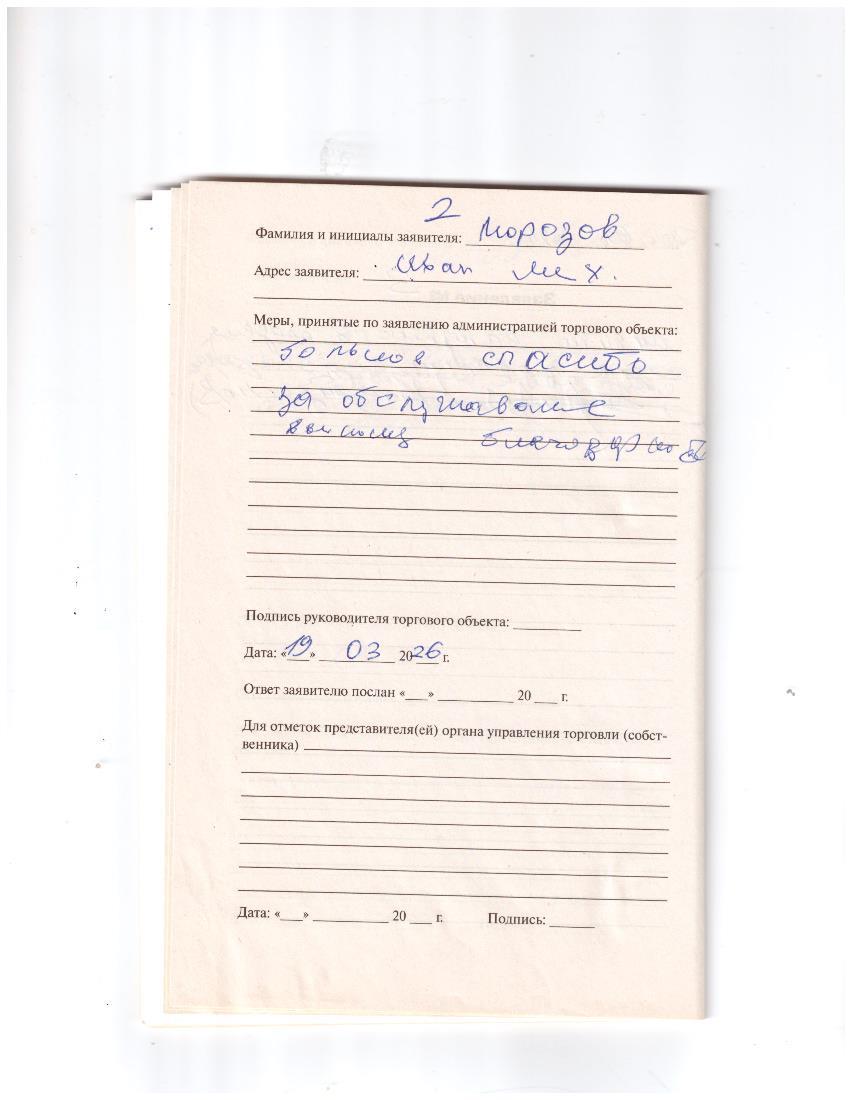 2
Фамилия и инициалы заявителя: Морозов
Адрес заявителя: Иван Мих.
Меры, принятые по заявлению администрацией торгового объекта:
большое спасибо
за обслуживание
Подпись руководителя торгового объекта:
Дата: «19» 03 2026 г.
Ответ заявителю послан «___» __________ 20 ___ г.
Для отметок представителя(ей) органа управления торговли (собст-
венника)
Дата: «___» __________ 20 ___ г. Подпись: ______